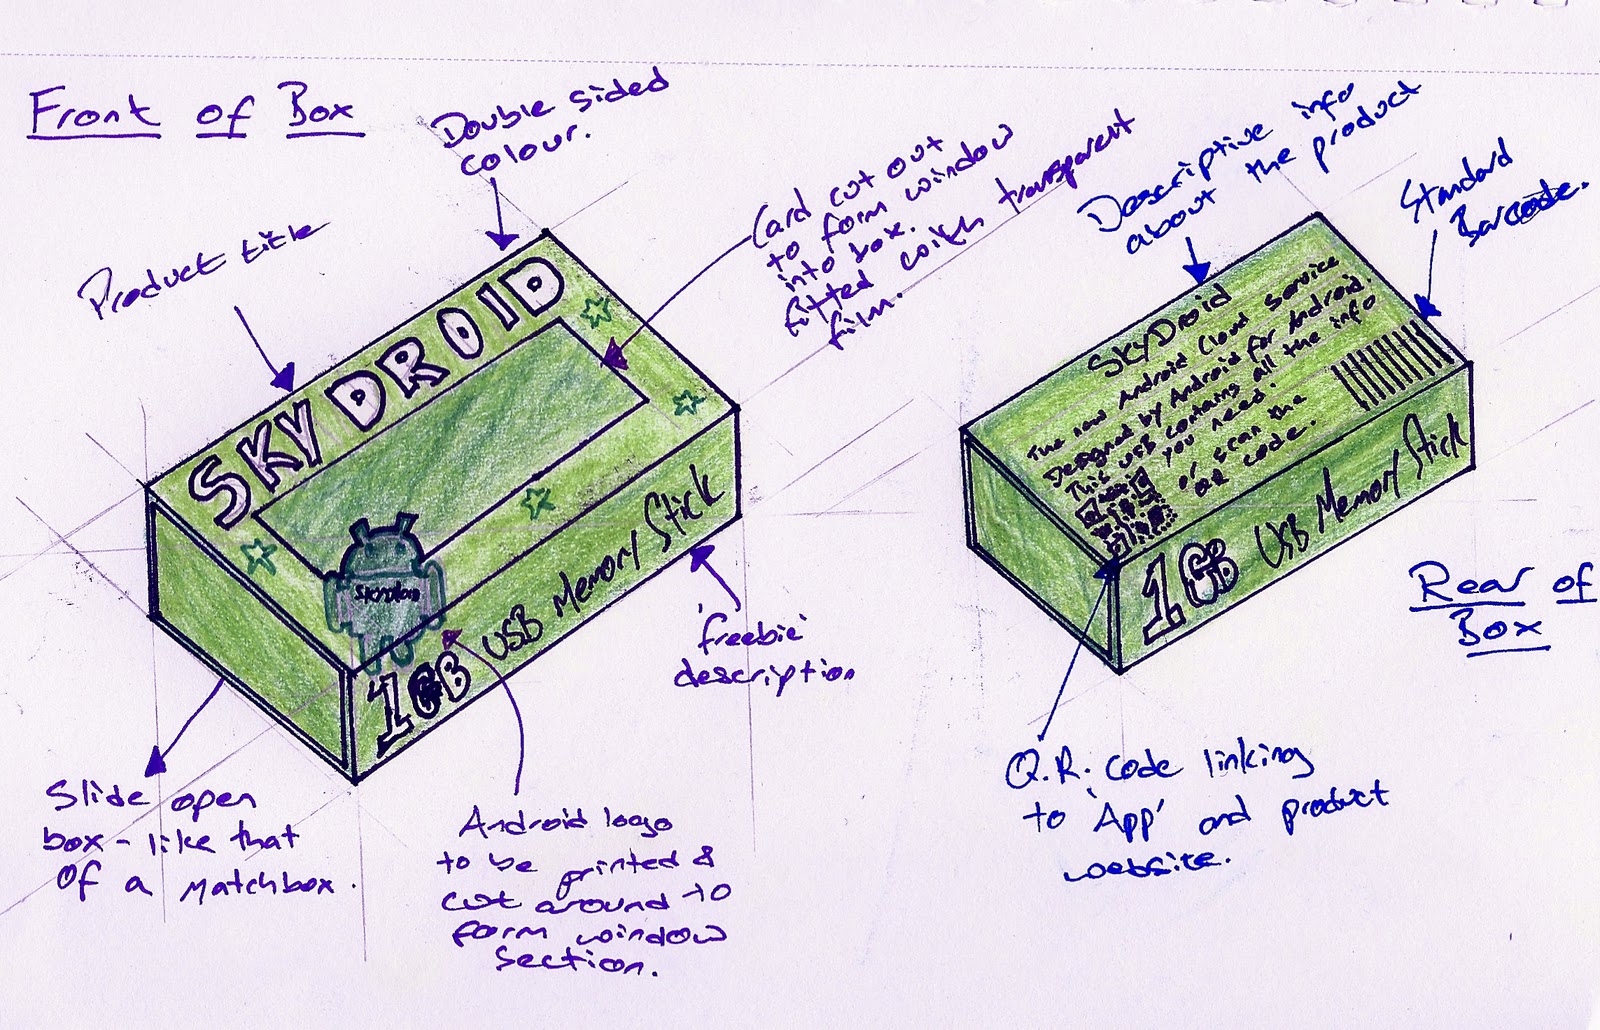 Front of Box
Double sided
colour.
Product title
Card cut out
to form window
into box.
fitted with transparent
film.
SKYDROID
1GB USB Memory Stick
'freebie'
description
Slide open
box - like that
of a matchbox.
Android logo
to be printed &
cut around to
form window
section.
Descriptive info
about the product
Standard
Barcode.
SkyDroid
The new Android Cloud service
Designed by Android for Android.
This USB contains all the info
you need.
or scan the
QR code.
1GB USB Memory Stick
Rear of
Box
Q.R. code linking
to 'App' and product
website.